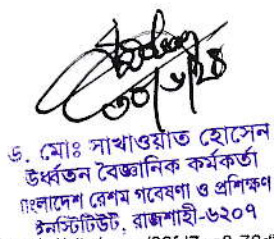 ৩০/৬/২৪
ড. মোঃ সাখাওয়াত হোসেন
উর্ধ্বতন বৈজ্ঞানিক কর্মকর্তা
বাংলাদেশ রেশম গবেষণা ও প্রশিক্ষণ
ইনস্টিটিউট, রাজশাহী-৬২০৭